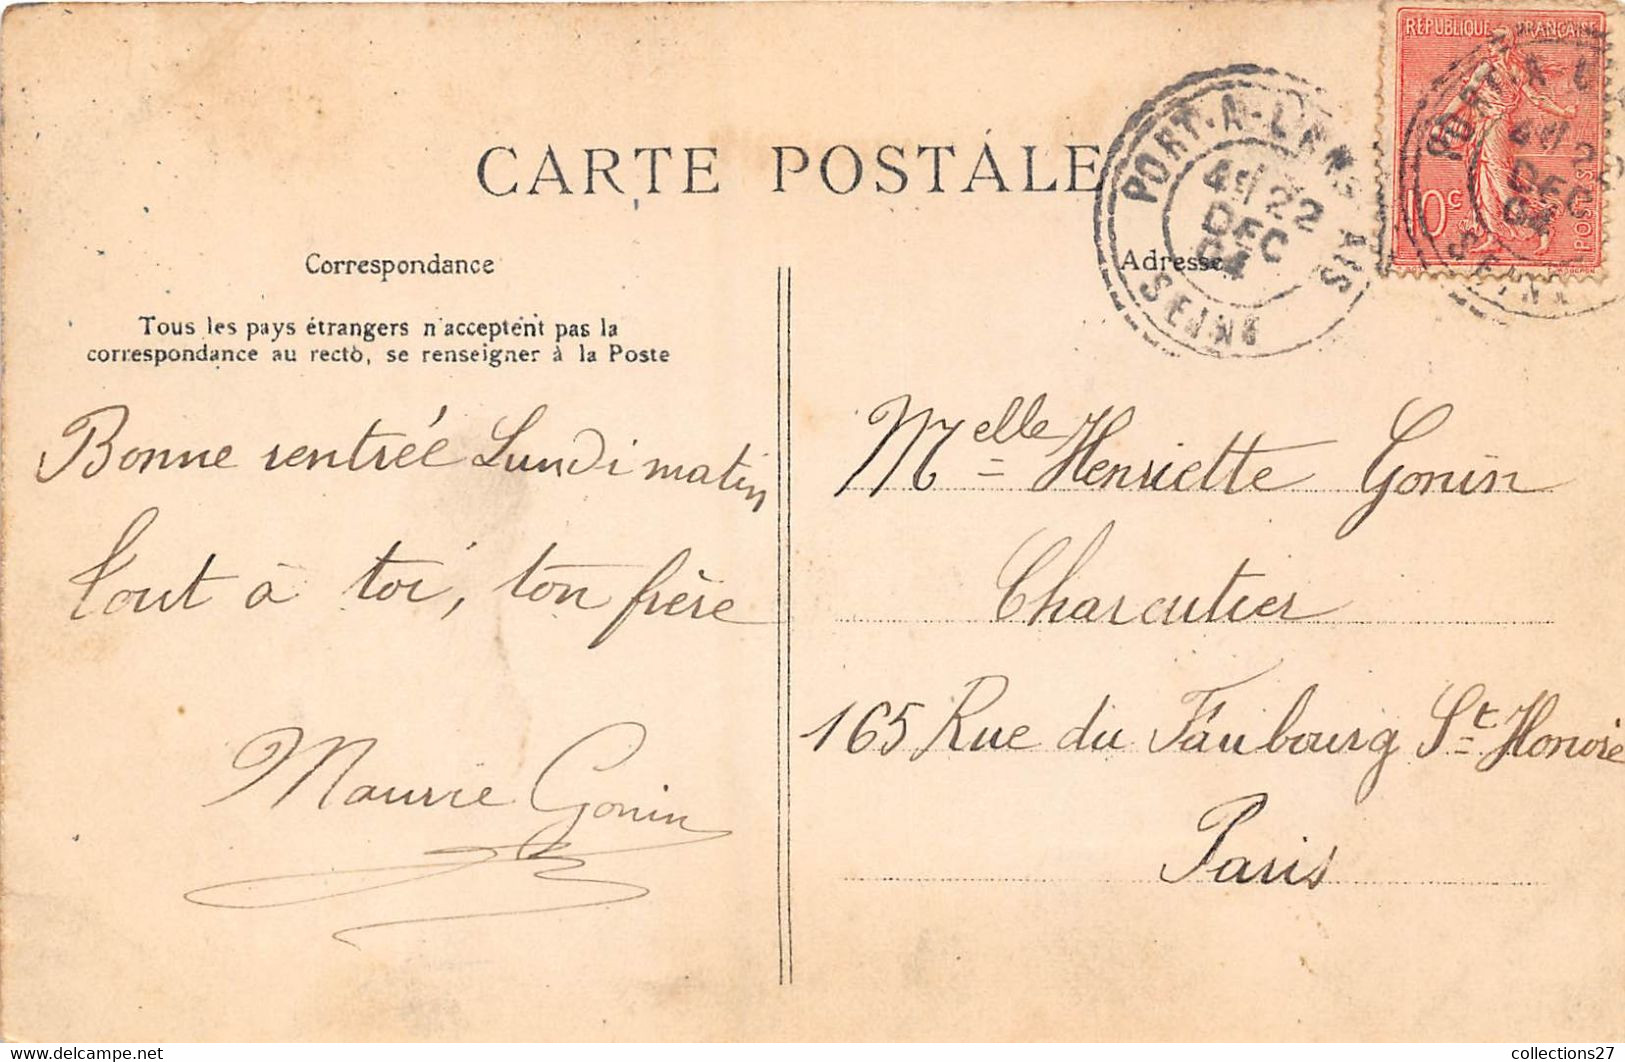 CARTE POSTALE
RÉPUBLIQUE FRANÇAISE
10c
POSTES
PORT-A-L'ANGLAIS
22
DEC
04
SEINE
Correspondance
Adresse
Tous les pays étrangers n'acceptent pas la
correspondance au recto, se renseigner à la Poste
Bonne rentrée Lundi matin
tout à toi, ton frère
Maurice Gonin
Melle Henriette Gonin
Charcutier
165 Rue du Faubourg St Honoré
Paris
collections27